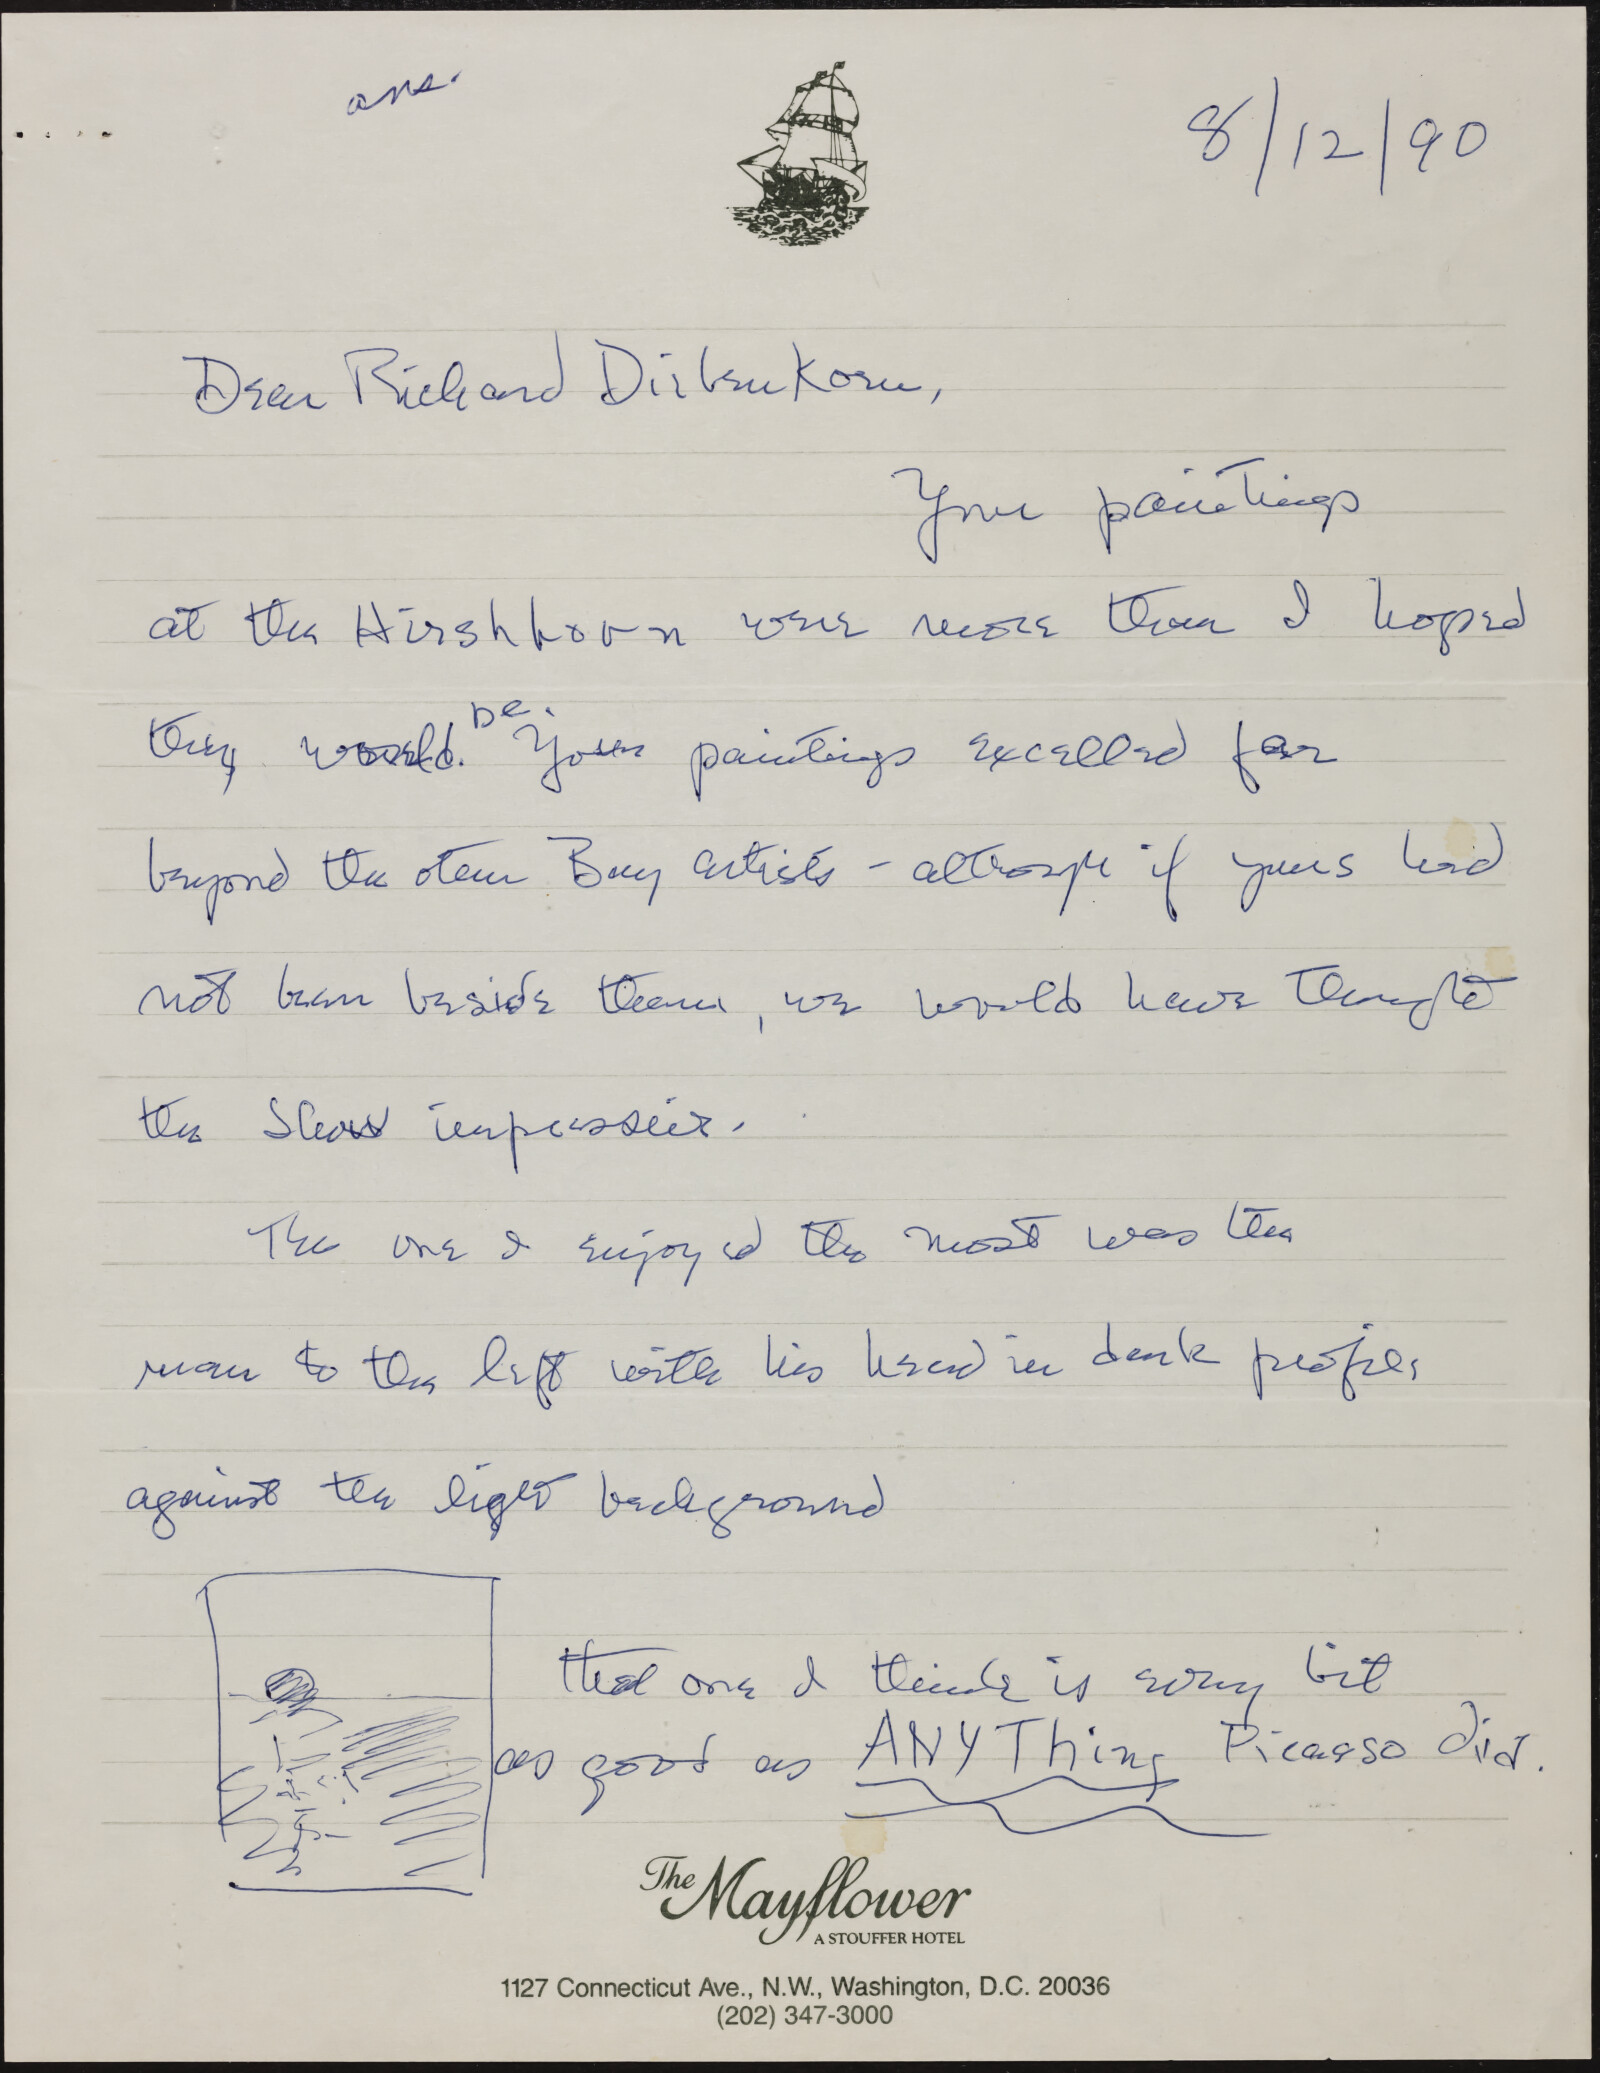 ans.
8/12/90
Dear Richard Diebenkorn,
Your paintings
at the Hirshhorn were more than I hoped
they would be. Your paintings excelled far
beyond the other Bay artists - although if yours had
not been beside them, we would have thought
the show impressive.
The one I enjoyed the most was the
man to the left with his head in dark profile,
against the light background
that one I think is every bit
as good as ANYThing Picasso did.
The Mayflower
A STOUFFER HOTEL
1127 Connecticut Ave., N.W., Washington, D.C. 20036
(202) 347-3000